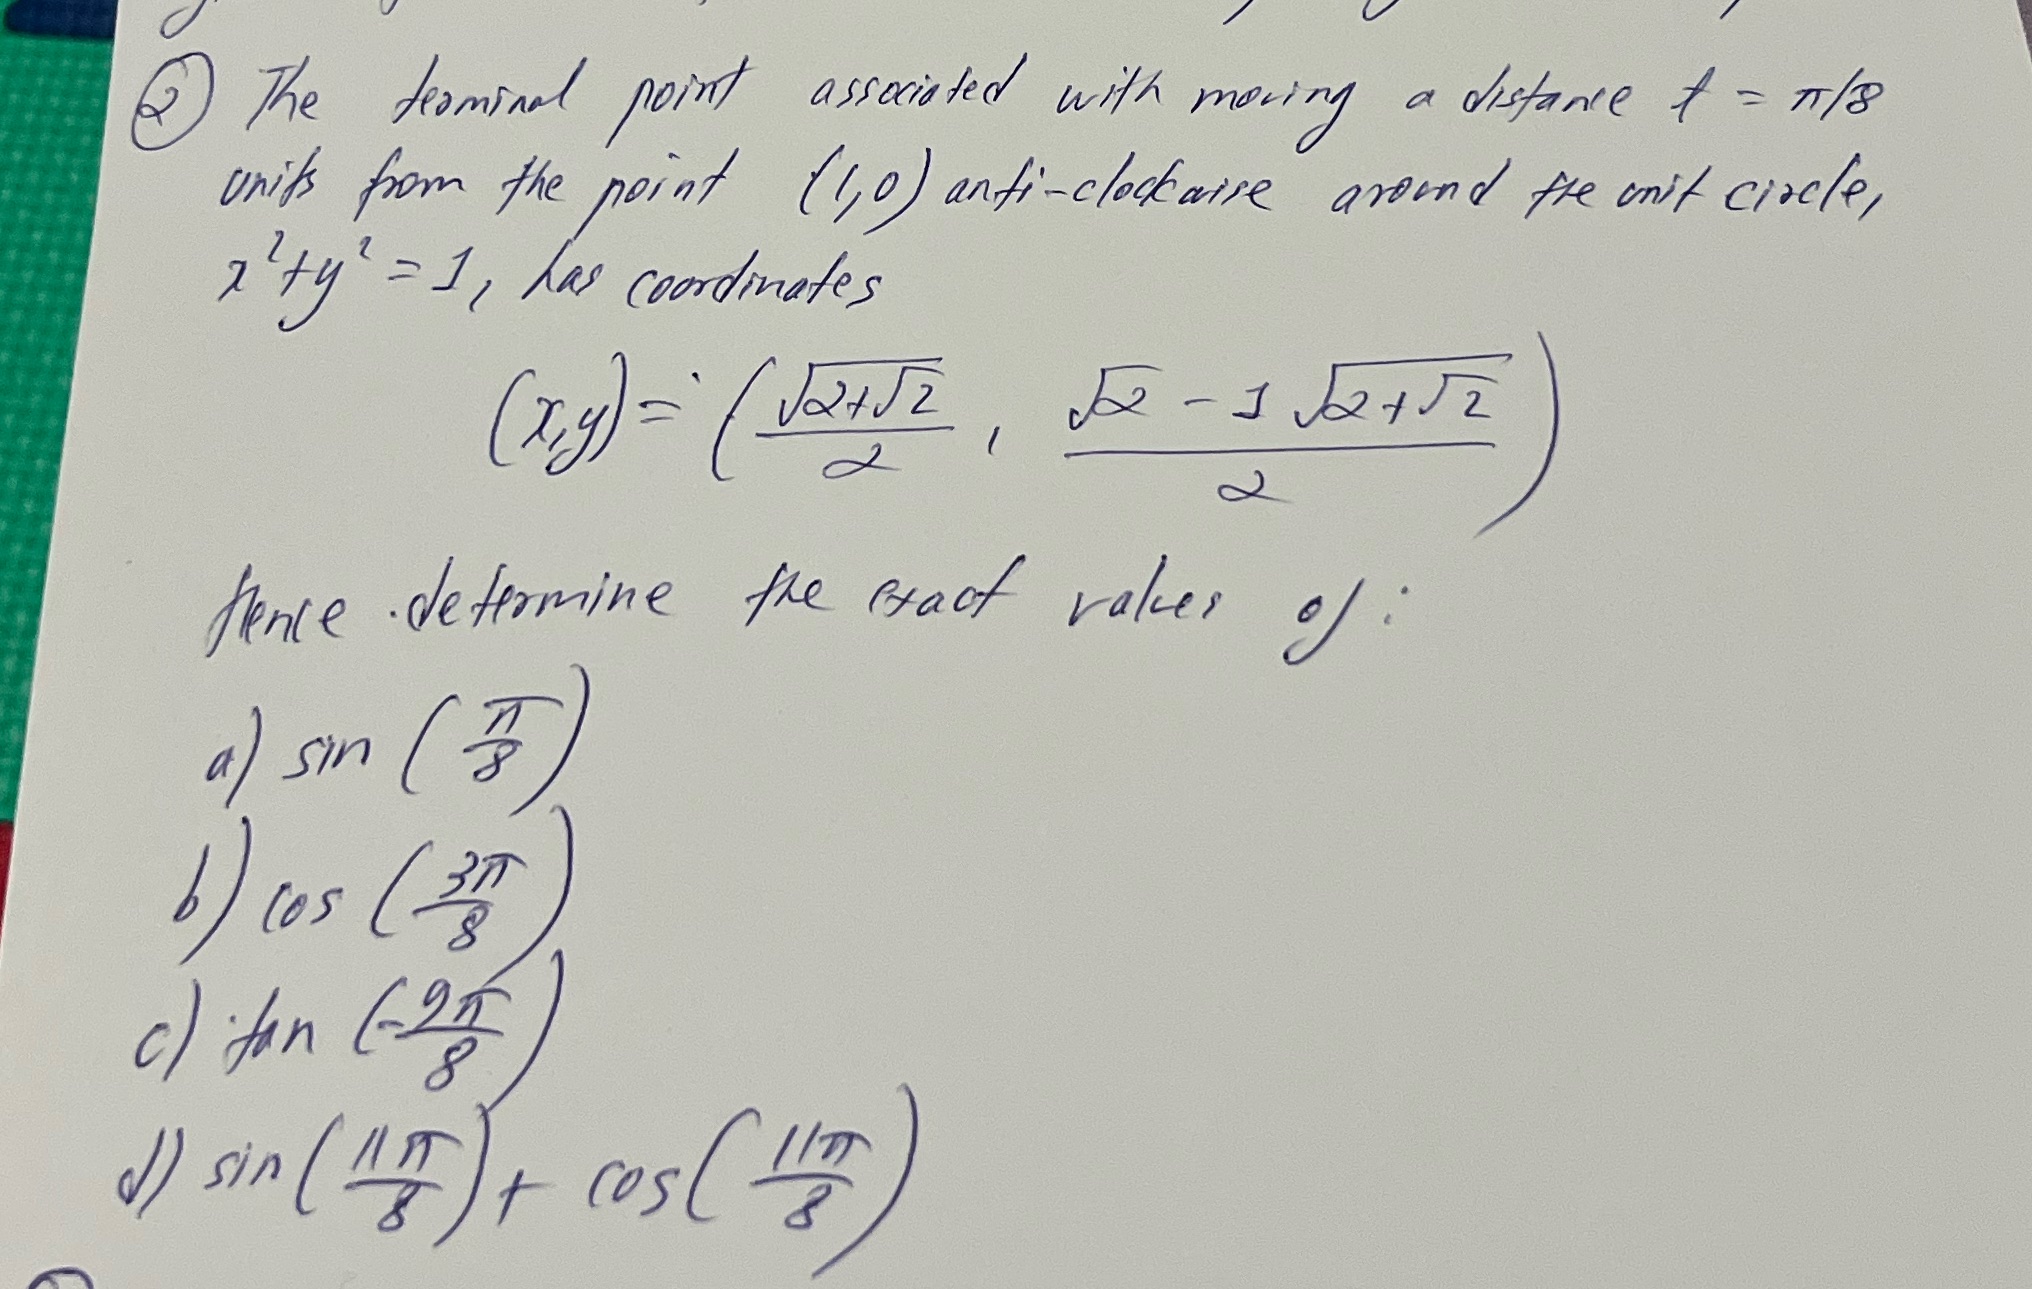 ② The terminal point associated with moving a distance t = π/8
units from the point (1,0) anti-clockwise around the unit circle,
x²+y² = 1, has coordinates
(x,y) = (√(2+√2)/2, (√2 - 1 √(2+√2))/2)
Hence determine the exact values of:
a) sin (π/8)
b) cos (3π/8)
c) tan (-9π/8)
d) sin (11π/8) + cos (11π/8)